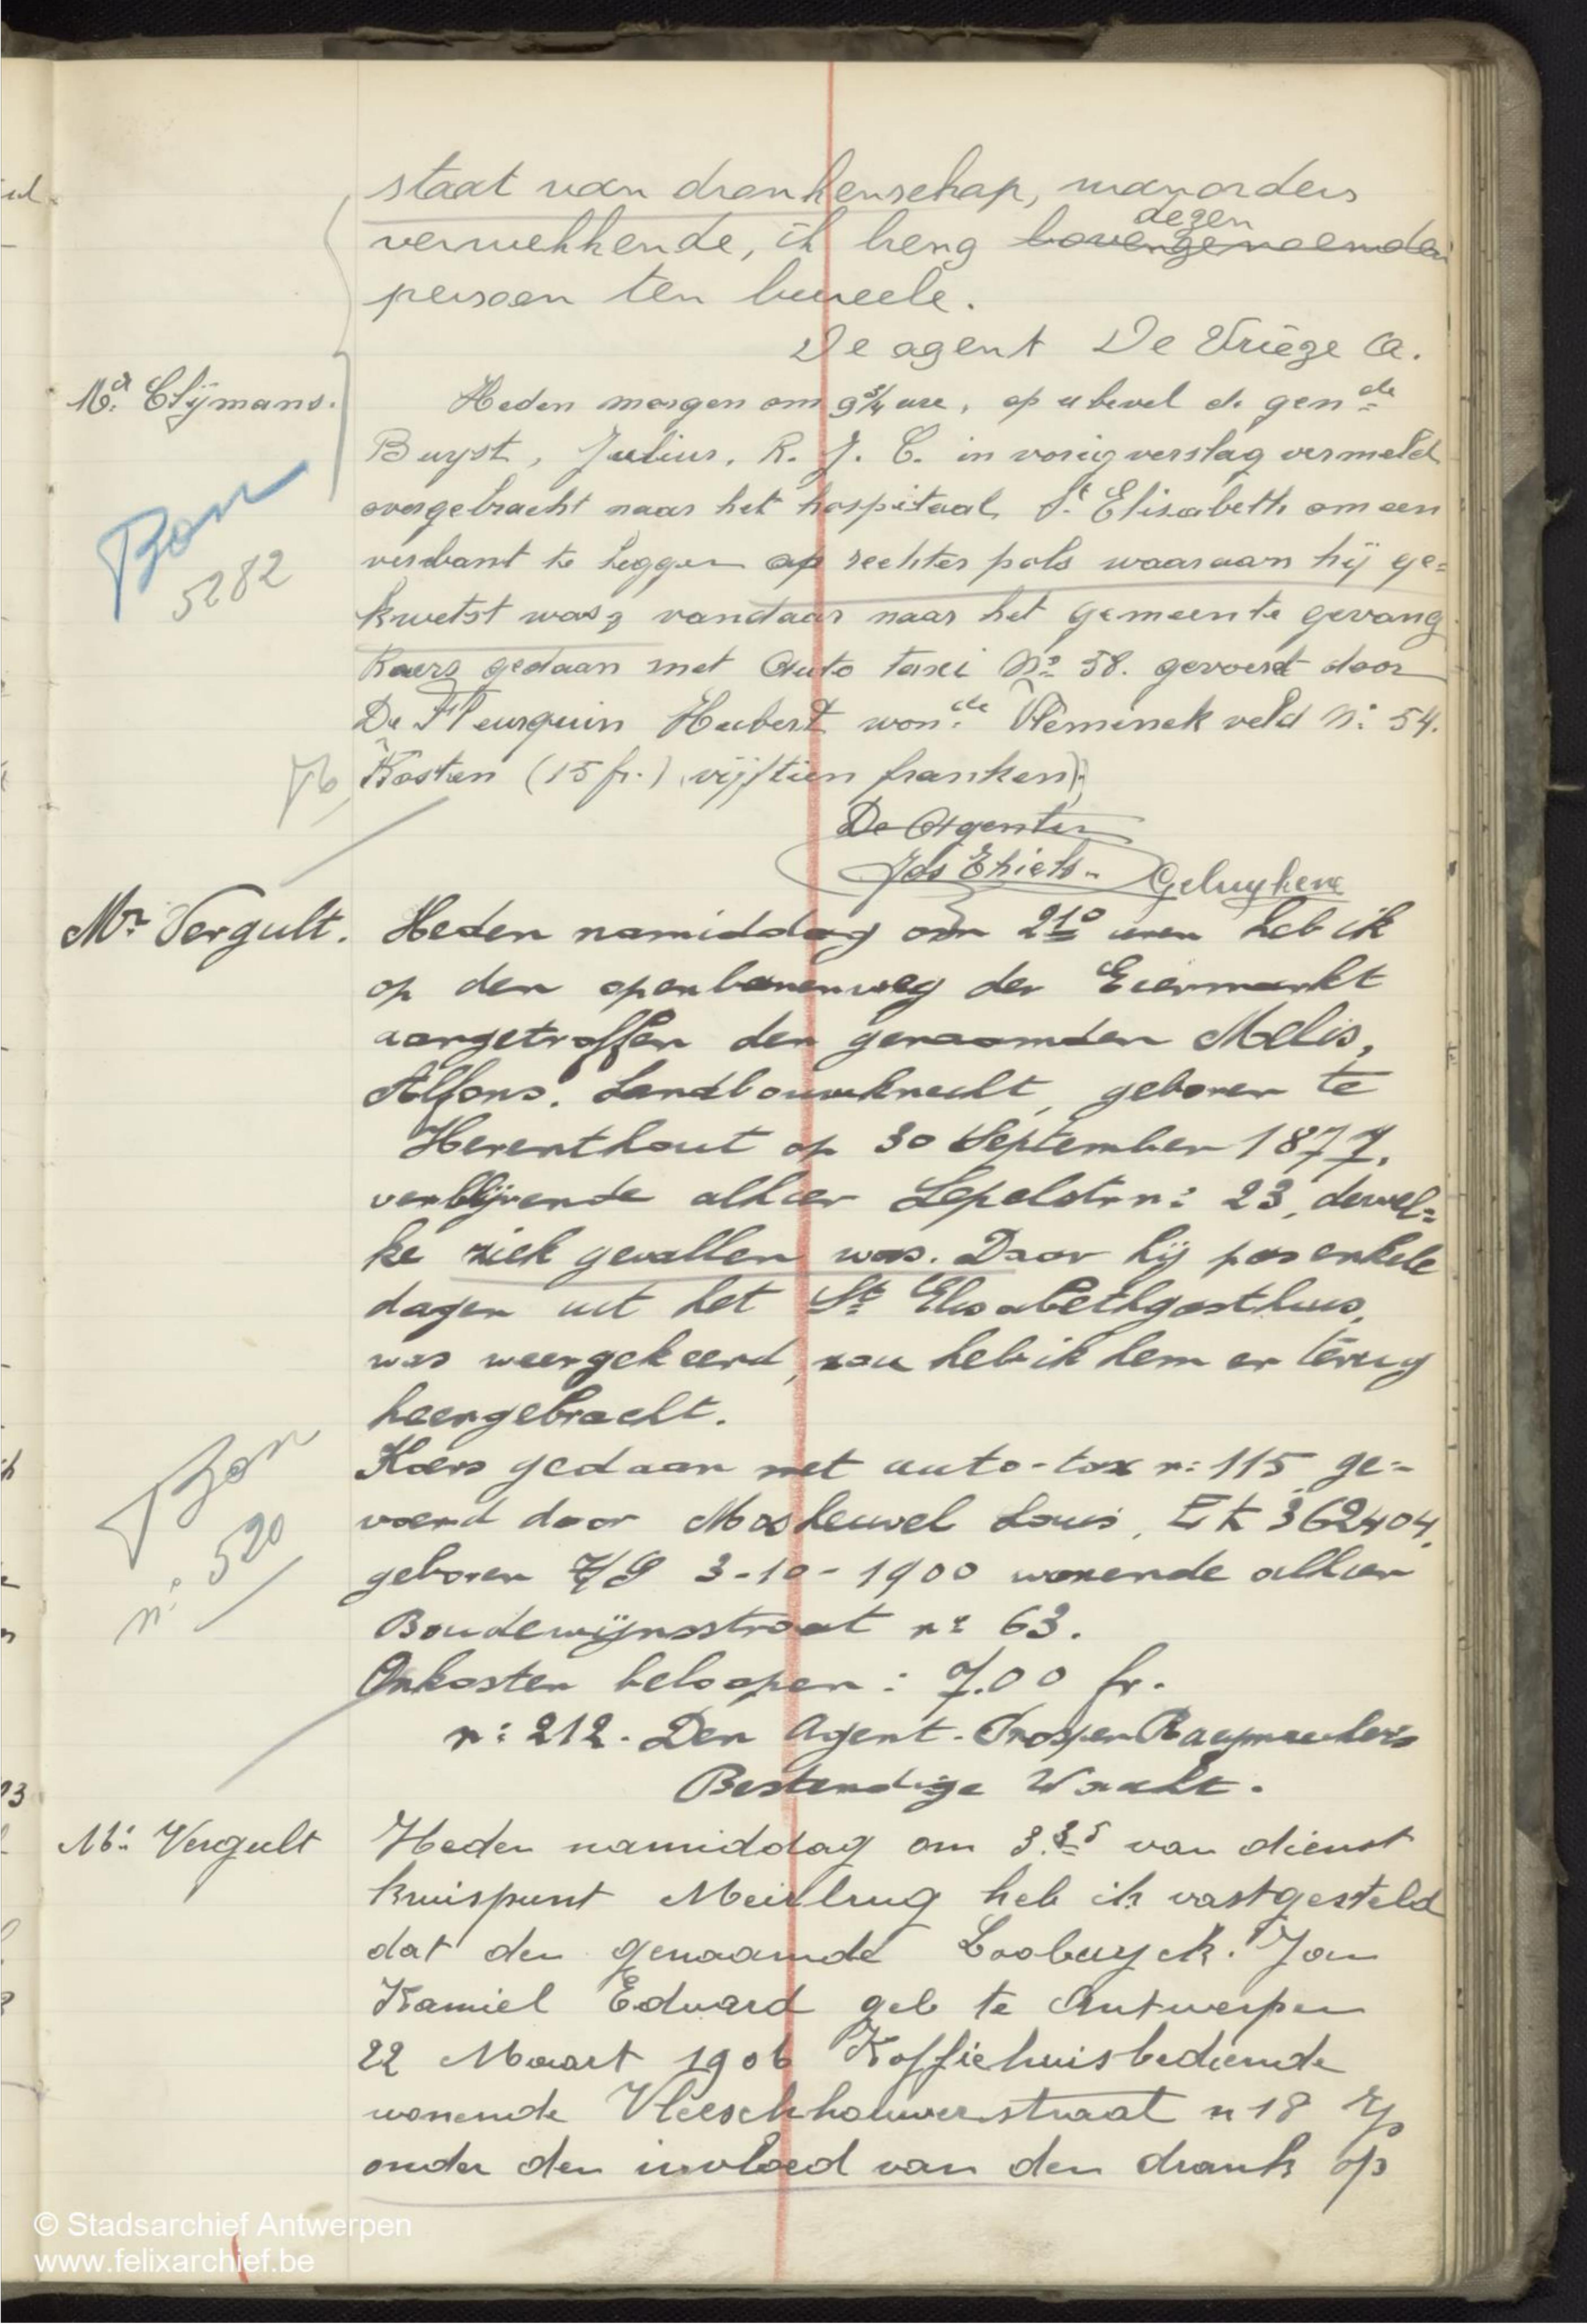 staat van dronkenschap, wanorders
dezen
verwekkende, ik breng bovengenoemden
persoon ten bureele.
De agent De Vrieze A.
Mr Clijmans.
Heden morgen om 9 3/4 ure, op u bevel de gen de
Buyst, Julius, R. J. C. in vorig verslag vermeld
overgebracht naar het hospitaal St Elisabeth om een
verbant te leggen op rechter pols waaraan hij ge=
Bon
5282
kwetst was, vandaar naar het gemeente gevang
Koers gedaan met Auto taxi No 58. gevoerd door
De Fleurquin Hubert won de Vleminckveld No 54.
Kosten (15 fr.) vijftien franken)
De Agenten
Jos Thiels - Geluykens
Mr Vergult.
Heden namiddag om 2 10 uren heb ik
op den openbarenweg der Eiermarkt
aangetroffen den genaamden Melis,
Alfons. Landbouwknecht, geboren te
Herenthout op 30 September 1877.
verblijvende alhier Lepelstr n: 23, dewel=
ke ziek gevallen was. Daar hij pas enkele
dagen uit het St Elisabethgasthuis,
was weergekeerd, zou heb ik hem er terug
heengebracht.
Bon
n: 520
Koers gedaan met auto-tax n: 115 ge=
voerd door Mosheuvel Louis, EK 362404,
geboren 3-10-1900 wonende alhier
Boudewijnsstraat n: 63.
Onkosten beloopen: 7.00 fr.
n: 212. Den Agent. Prosper Raeymaekers
Bestendige Wacht.
Mr Vergult
Heden namiddag om 3.35 van dienst
kruispunt Meirbrug heb ik vastgesteld
dat den genaamde Loobuyck. Jan
Kamiel Edward geb te Antwerpen
22 Maart 1906 Koffiehuisbediende
wonende Vleeschhouwerstraat n 18
onder den invloed van den drank op
© Stadsarchief Antwerpen
www.felixarchief.be